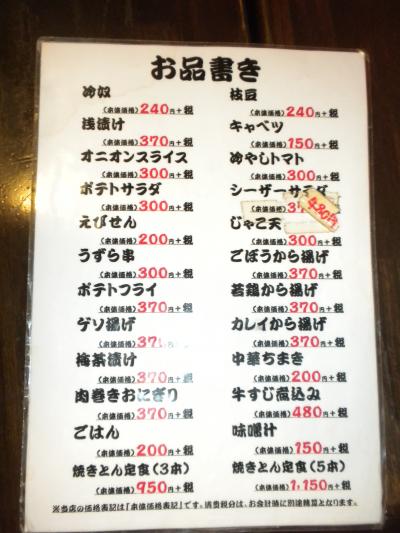 お品書き
冷奴
(本体価格)240円+税
浅漬け
(本体価格)370円+税
オニオンスライス
(本体価格)300円+税
ポテトサラダ
(本体価格)300円+税
えびせん
(本体価格)200円+税
うずら串
(本体価格)300円+税
ポテトフライ
(本体価格)370円+税
ゲソ揚げ
(本体価格)37 円+税
梅茶漬け
(本体価格)370円+税
肉巻きおにぎり
(本体価格)370円+税
ごはん
(本体価格)200円+税
焼きとん定食(3本)
(本体価格)950円+税
枝豆
(本体価格)240円+税
キャベツ
(本体価格)150円+税
冷やしトマト
(本体価格)300円+税
シーザーサラダ
(本体価格)3
480円
じゃこ天
(本体価格)300円+税
ごぼうから揚げ
(本体価格)370円+税
若鶏から揚げ
(本体価格)370円+税
カレイから揚げ
(本体価格)370円+税
中華ちまき
(本体価格)200円+税
牛すじ煮込み
(本体価格)480円+税
味噌汁
(本体価格)150円+税
焼きとん定食(5本)
(本体価格)1,150円+税
※当店の価格表記は「本体価格表記」です。消費税分は、お会計時に別途精算となります。